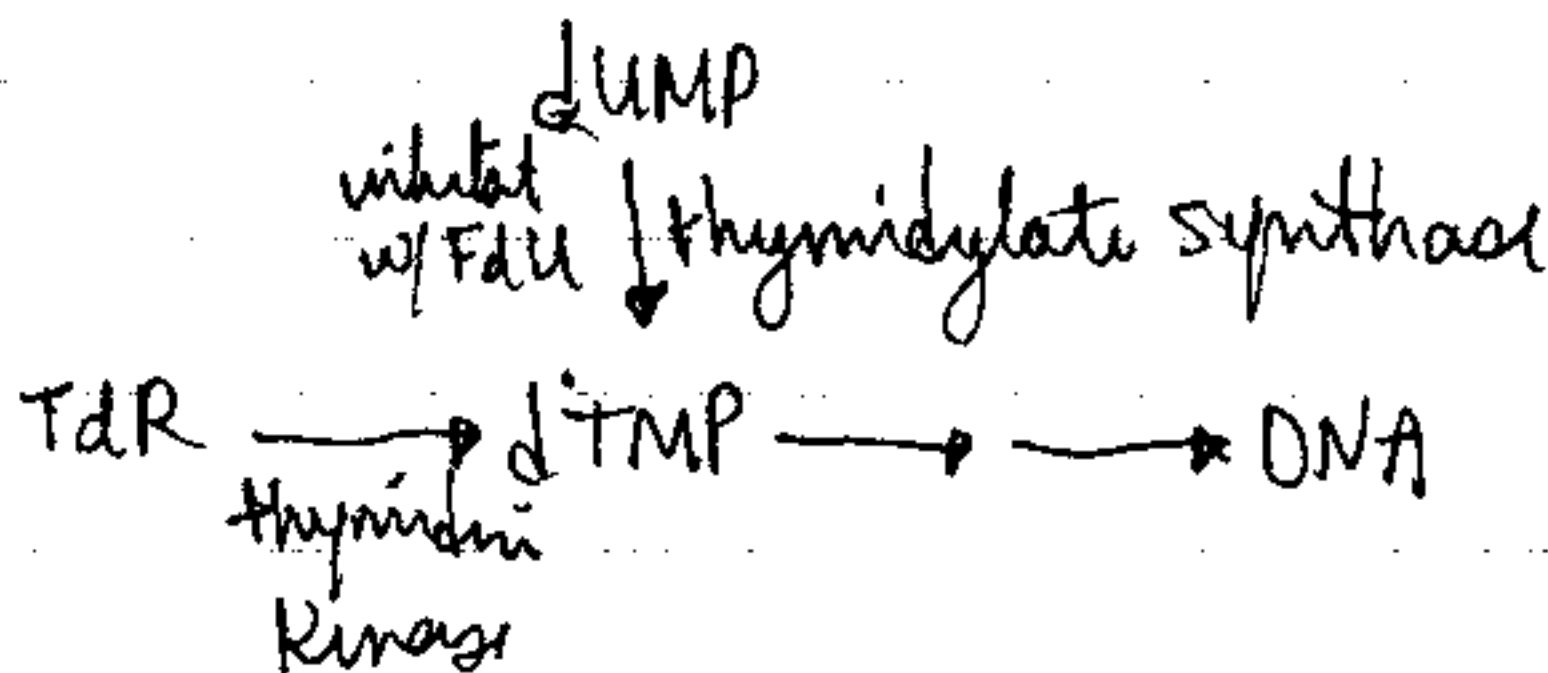 dUMP
inhibited
w/ FdU
thymidylate synthase
TdR
dTMP
DNA
thymidine
Kinase